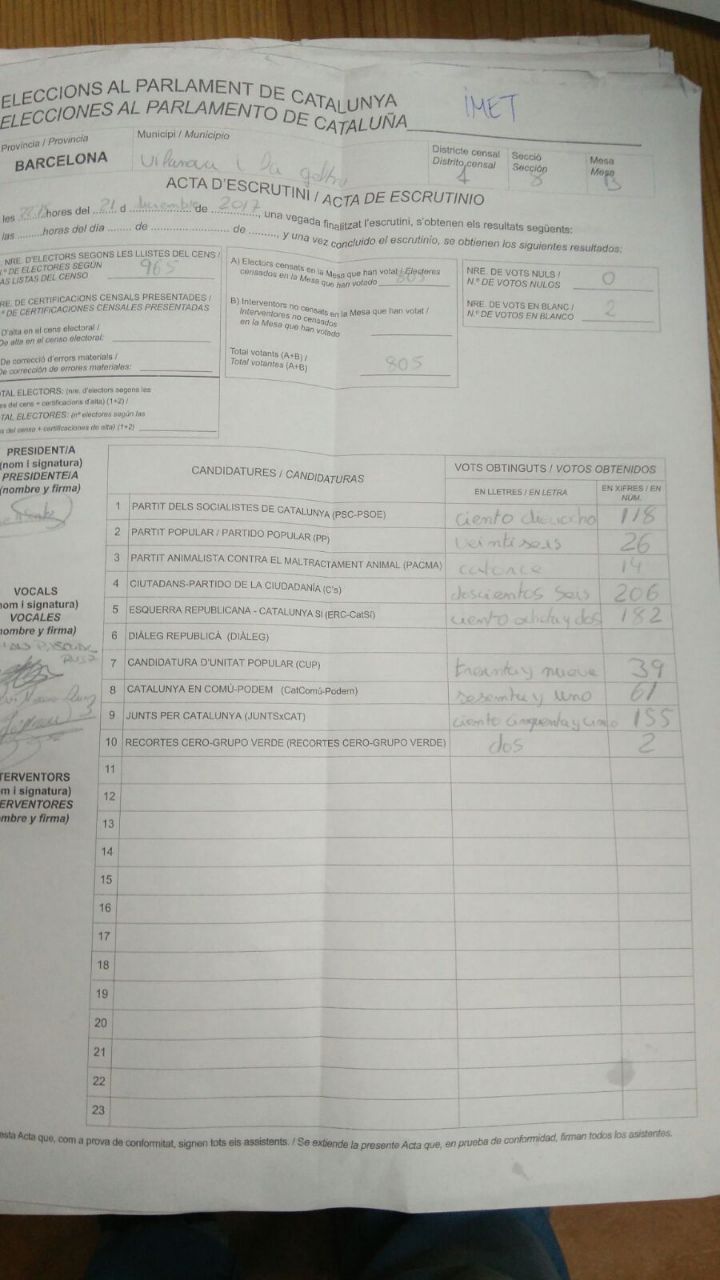 ELECCIONS AL PARLAMENT DE CATALUNYA
ELECCIONES AL PARLAMENTO DE CATALUÑA
iMET
Provincia / Provincia
BARCELONA
Municipi / Municipio
Vilanova i la geltru
Districte censal
Distrito censal
4
Secció
Sección
8
Mesa
Mesa
B
ACTA D'ESCRUTINI / ACTA DE ESCRUTINIO
les hores del 21 d de 2017, una vegada finalitzat l'escrutini, s'obtenen els resultats següents:
las ........horas del día ...... de ........................ de ........., y una vez concluido el escrutinio, se obtienen los siguientes resultados:
NRE. D'ELECTORS SEGONS LES LLISTES DEL CENS /
N.º DE ELECTORES SEGÚN
LAS LISTAS DEL CENSO
965
RE. DE CERTIFICACIONS CENSALS PRESENTADES /
º DE CERTIFICACIONES CENSALES PRESENTADAS
D'alta en el cens electoral /
De alta en el censo electoral:
De correcció d'errors materials /
De corrección de errores materiales:
TAL ELECTORS: (nre. d'electors segons les
es del cens + certificacions d'alta) (1+2) /
TAL ELECTORES: (nº electores según las
s del censo + certificaciones de alta) (1+2)
A) Electors censats en la Mesa que han votat / Electores
censados en la Mesa que han votado 805
B) Interventors no censats en la Mesa que han votat /
Interventores no censados
en la Mesa que han votado
Total votants (A+B) /
Total votantes (A+B)
805
NRE. DE VOTS NULS /
N.º DE VOTOS NULOS
0
NRE. DE VOTS EN BLANC /
N.º DE VOTOS EN BLANCO
2
PRESIDENT/A
(nom i signatura)
PRESIDENTE/A
(nombre y firma)
VOCALS
nom i signatura)
VOCALES
nombre y firma)
TERVENTORS
m i signatura)
ERVENTORES
mbre y firma)
CANDIDATURES / CANDIDATURAS
VOTS OBTINGUTS / VOTOS OBTENIDOS
EN LLETRES / EN LETRA
EN XIFRES / EN NÚM.
1 PARTIT DELS SOCIALISTES DE CATALUNYA (PSC-PSOE) ciento dieciocho 118
2 PARTIT POPULAR / PARTIDO POPULAR (PP) veintiseis 26
3 PARTIT ANIMALISTA CONTRA EL MALTRACTAMENT ANIMAL (PACMA) catorce 14
4 CIUTADANS-PARTIDO DE LA CIUDADANÍA (C's) doscientos seis 206
5 ESQUERRA REPUBLICANA - CATALUNYA SÍ (ERC-CatSí) ciento ochenta y dos 182
6 DIÀLEG REPUBLICÀ (DIÀLEG)
7 CANDIDATURA D'UNITAT POPULAR (CUP) treinta y nueve 39
8 CATALUNYA EN COMÚ-PODEM (CatComú-Podem) sesenta y uno 61
9 JUNTS PER CATALUNYA (JUNTSxCAT) ciento cinquenta y cinco 155
10 RECORTES CERO-GRUPO VERDE (RECORTES CERO-GRUPO VERDE) dos 2
11
12
13
14
15
16
17
18
19
20
21
22
23
esta Acta que, com a prova de conformitat, signen tots els assistents. / Se extiende la presente Acta que, en prueba de conformidad, firman todos los asistentes.